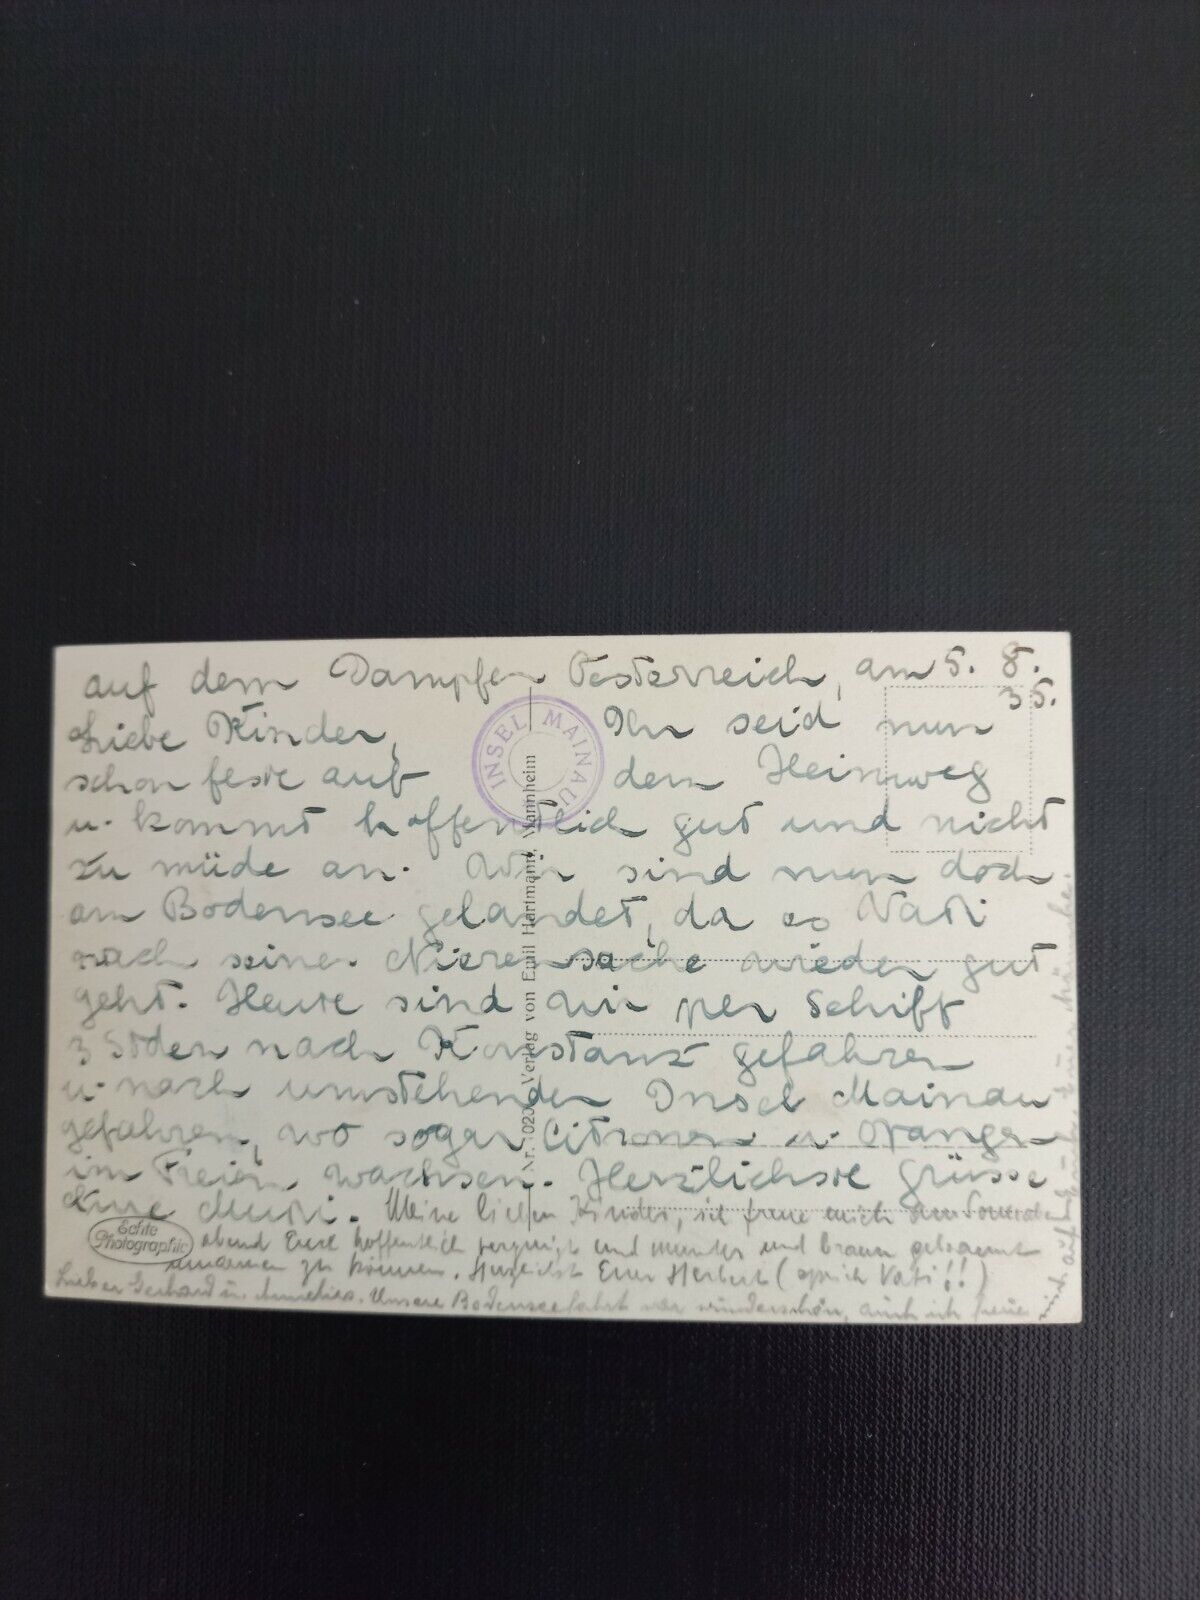 auf dem Dampfer Oesterreich, am 5. 8.
35.
Liebe Kinder, Ihr seid nun
schon feste auf dem Heimweg
u. kommt hoffentlich gut und nicht
zu müde an. Wir sind nun doch
am Bodensee gelandet, da es Vati
nach seiner Nierensache wieder gut
geht. Heute sind wir per Schiff
3 Stden nach Konstanz gefahren
u. nach umstehender Insel Mainau
gefahren, wo sogar Citronen u. Orangen
im Freien wachsen. Herzlichste Grüsse
Eure Mutti.
Meine lieben Kinder, ich freue mich
abend Euch hoffentlich vergnügt und munter und braun gebrannt
zu können. Herzlichst Euer Herbert (sprich Vati!!)
Lieber Gerhard u. Annelies. Unsere Bodenseefahrt war wunderschön, auch ich freue
mich auf
INSEL MAINAU
Verlag von Emil Hartmann, Mannheim
Echte
Photographie